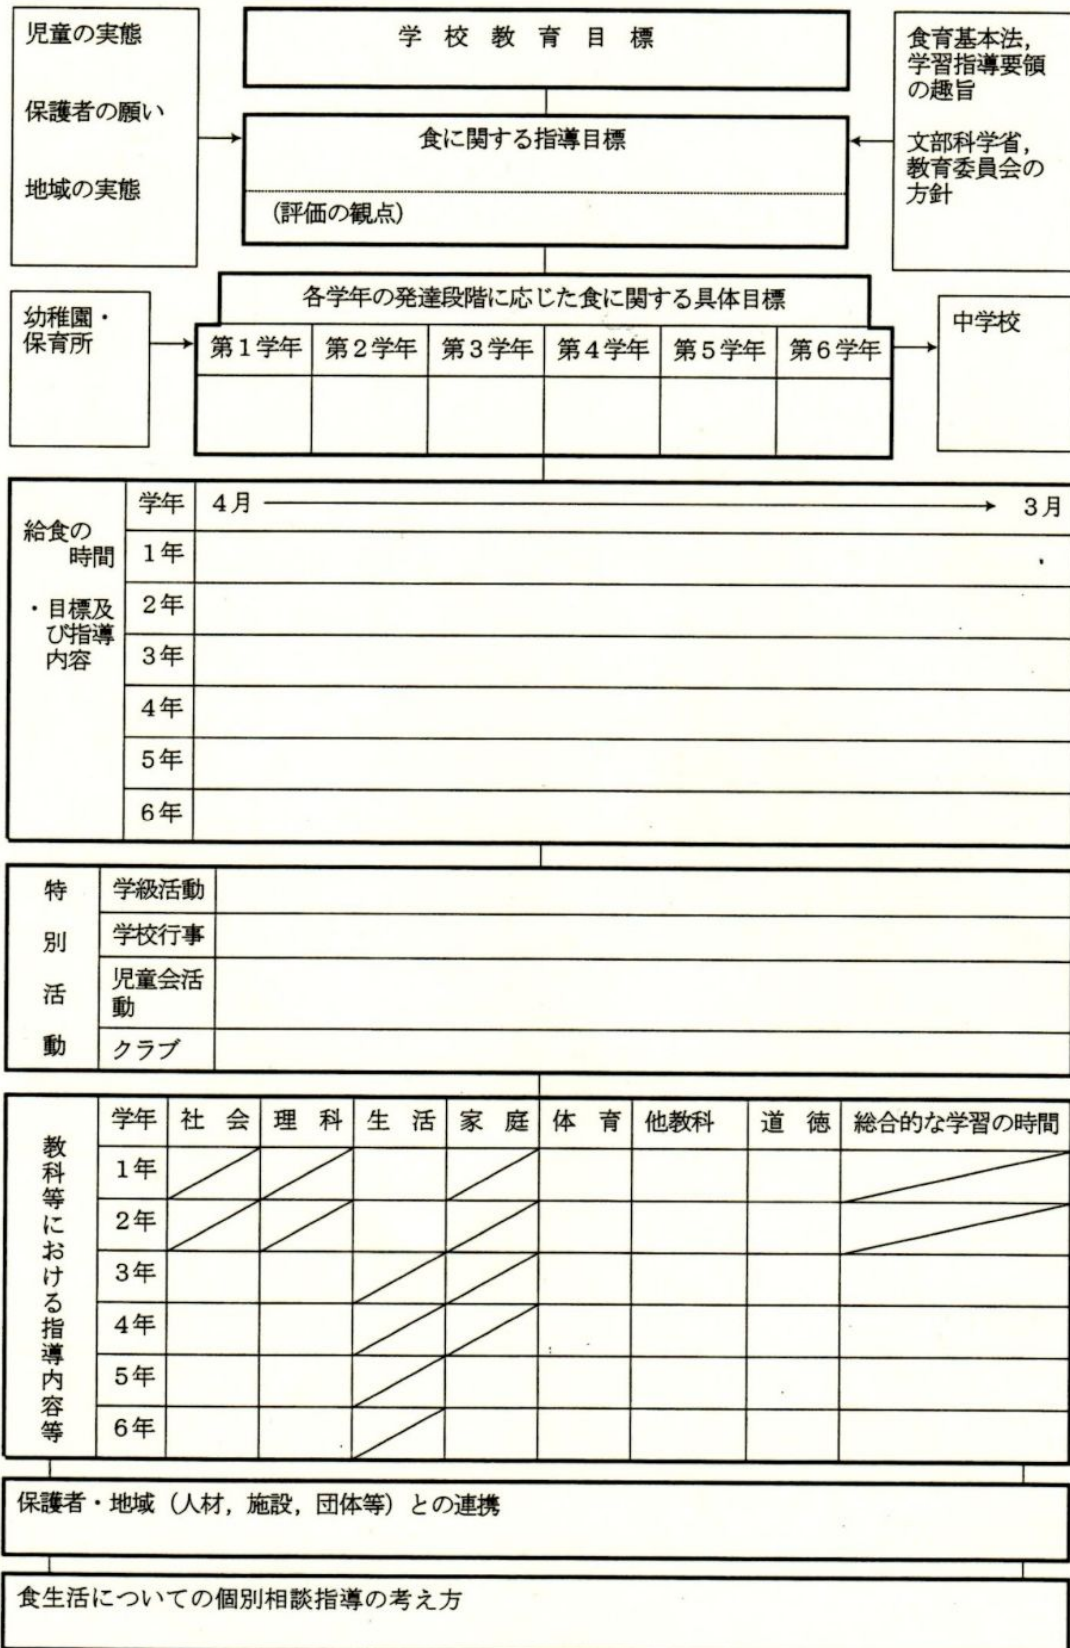 児童の実態
保護者の願い
地域の実態
学校教育目標
食に関する指導目標
(評価の観点)
食育基本法,
学習指導要領
の趣旨
文部科学省,
教育委員会の
方針
幼稚園・
保育所
各学年の発達段階に応じた食に関する具体目標
第1学年 第2学年 第3学年 第4学年 第5学年 第6学年
中学校
給食の
時間
・目標及
び指導
内容
学年 4月 3月
1年
2年
3年
4年
5年
6年
特別活動
学級活動
学校行事
児童会活
動
クラブ
教科等における指導内容等
学年 社会 理科 生活 家庭 体育 他教科 道徳 総合的な学習の時間
1年
2年
3年
4年
5年
6年
保護者・地域（人材，施設，団体等）との連携
食生活についての個別相談指導の考え方